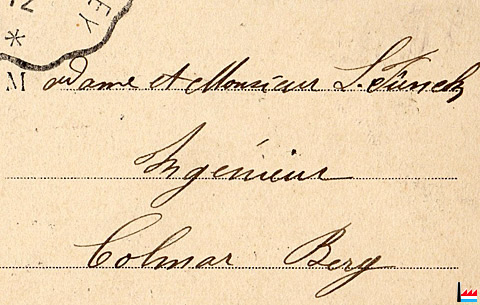 EY
71
*
Madame et Monsieur S. Funck
Ingénieur
Colmar Berg